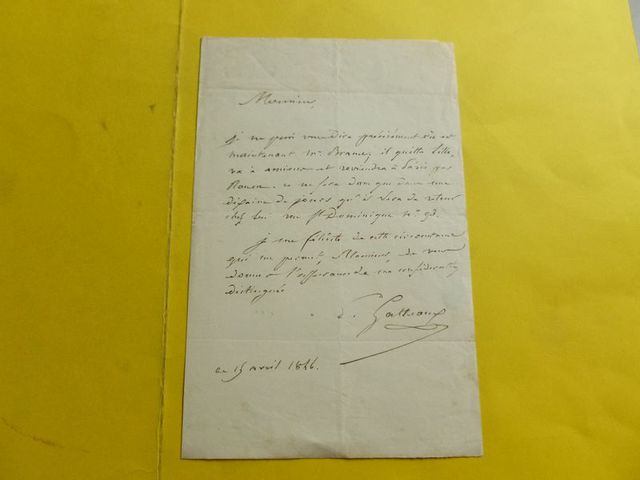 Monsieur,
je ne puis vous dire précisément où est
maintenant Mr. Brame, il quitte Lille,
va à amiens et reviendra à Paris par
Rouen. ce ne sera donc que dans une
dixaine de jours qu'il sera de retour
chez lui rue St Dominique no
je me félicite de cette circonstance
qui me permet, Monsieur, de vous
donner l'assurance de ma considération
distinguée
Gatteaux
ce 15 avril 1846.